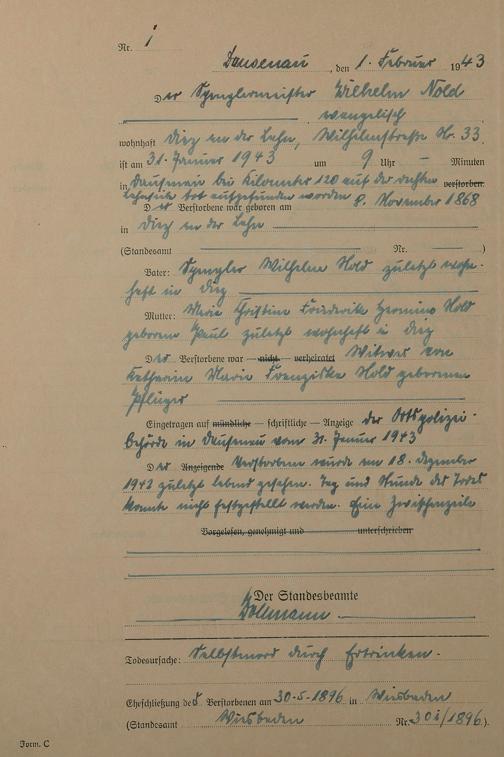 Nr. 1
Dausenau, den 1. Februar 1943
Der Spenglermeister Wilhelm Nold
evangelisch
wohnhaft Diez an der Lahn, Wilhelmstraße Nr. 33
ist am 31. Januar 1943 um 9 Uhr — Minuten
in Dausenau bei Kilometer 120 auf der rechten verstorben.
Lahnseite tot aufgefunden worden
Der Verstorbene war geboren am 9. November 1868
in Diez an der Lahn
(Standesamt Nr. )
Vater: Spengler Wilhelm Nold zuletzt wohn-
haft in Diez
Mutter: Marie Christine Friederike Hermine Nold
geborene Paul zuletzt wohnhaft in Diez
Der Verstorbene war — nicht — verheiratet Witwer von
Katharine Marie Franziska Nold geborenen
Pflüger
Eingetragen auf mündliche — schriftliche — Anzeige der Ortspolizei-
behörde in Dausenau vom 31. Januar 1943
Der Anzeigende Verstorbene wurde am 18. Dezember
1942 zuletzt lebend gesehen. Tag und Stunde des Todes
konnte nicht festgestellt werden. Eine Zwischenzeile
Vorgelesen, genehmigt und unterschrieben
Der Standesbeamte
Todesursache: Selbstmord durch Ertrinken.
Eheschließung des Verstorbenen am 30.5.1896 in Wiesbaden
(Standesamt Wiesbaden Nr. 301/1896.)
Form. C